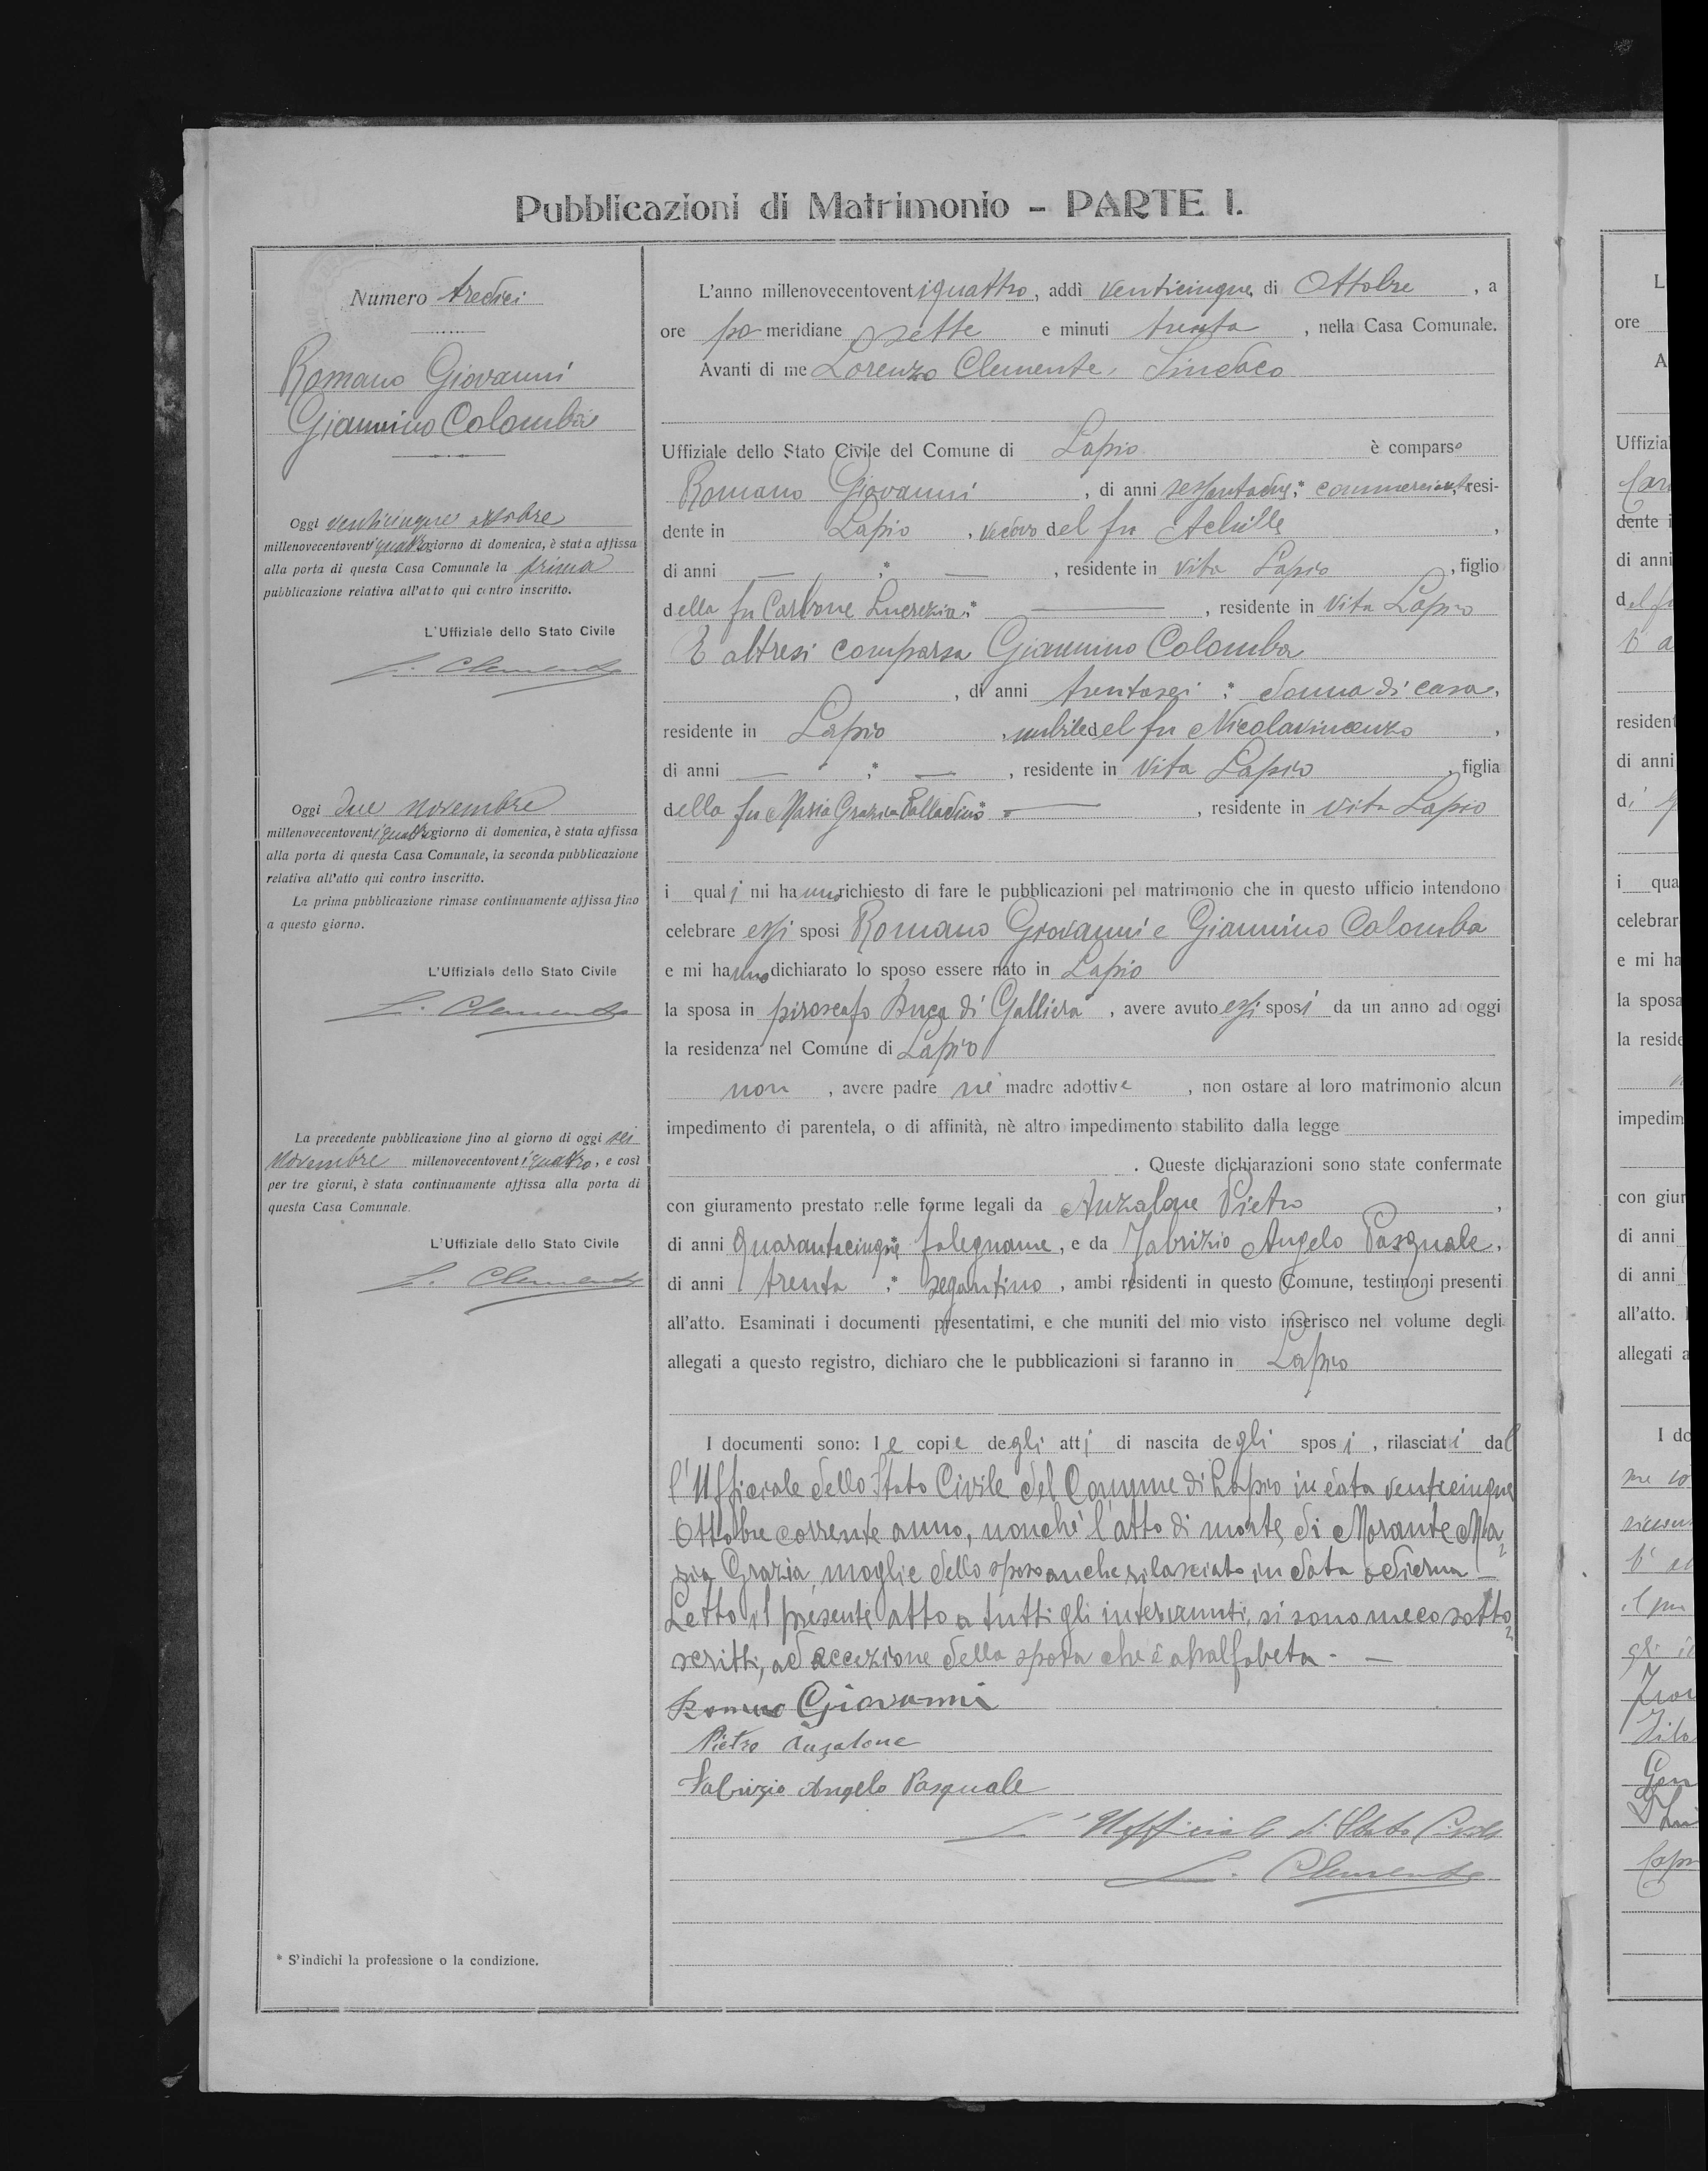 Pubblicazioni di Matrimonio - PARTE I.
Numero tredici
Romano Giovanni
Giannino Colomba
Oggi venticinque ottobre
millenovecentoventiquattro giorno di domenica, è stata affissa
alla porta di questa Casa Comunale la prima
pubblicazione relativa all'atto qui contro inscritto.
L'Uffiziale dello Stato Civile
L. Clemente
Oggi due novembre
millenovecentoventiquattro giorno di domenica, è stata affissa
alla porta di questa Casa Comunale, la seconda pubblicazione
relativa all'atto qui contro inscritto.
La prima pubblicazione rimase continuamente affissa fino
a questo giorno.
L'Uffiziale dello Stato Civile
L. Clemente
La precedente pubblicazione fino al giorno di oggi sei
novembre millenovecentoventiquattro, e così
per tre giorni, è stata continuamente affissa alla porta di
questa Casa Comunale.
L'Uffiziale dello Stato Civile
L. Clemente
* S'indichi la professione o la condizione.
L'anno millenovecentoventiquattro, addì venticinque di Ottobre, a
ore po meridiane sette e minuti trenta, nella Casa Comunale.
Avanti di me Lorenzo Clemente, Sindaco
Uffiziale dello Stato Civile del Comune di Lapio è comparso
Romano Giovanni, di anni ;* commerciante, resi-
dente in Lapio, vedovo del fu Achille,
di anni — ;* —, residente in vita Lapio, figlio
della fu Carbone Lucrezia ;* —, residente in vita Lapio
È altresì comparsa Giannino Colomba
, di anni trentasei ;* donna di casa,
residente in Lapio, nubile del fu Nicolavincenzo,
di anni — ;* —, residente in vita Lapio, figlia
della fu Maria Grazia Palladino ;* —, residente in vita Lapio
i quali mi hanno richiesto di fare le pubblicazioni pel matrimonio che in questo ufficio intendono
celebrare essi sposi Romano Giovanni e Giannino Colomba
e mi hanno dichiarato lo sposo essere nato in Lapio
la sposa in piroscafo Duca di Galliera, avere avuto essi sposi da un anno ad oggi
la residenza nel Comune di Lapio
non, avere padre nè madre adottive, non ostare al loro matrimonio alcun
impedimento di parentela, o di affinità, nè altro impedimento stabilito dalla legge
. Queste dichiarazioni sono state confermate
con giuramento prestato nelle forme legali da Anzalone Pietro,
di anni quarantacinque ;* falegname, e da Fabrizio Angelo Pasquale,
di anni trenta ;* segantino, ambi residenti in questo Comune, testimoni presenti
all'atto. Esaminati i documenti presentatimi, e che muniti del mio visto inserisco nel volume degli
allegati a questo registro, dichiaro che le pubblicazioni si faranno in Lapio
I documenti sono: le copie degli atti di nascita degli sposi, rilasciati dal
l'Ufficiale dello Stato Civile del Comune di Lapio in data venticinque
Ottobre corrente anno, nonchè l'atto di morte di Morante Ma=
ria Grazia, moglie dello sposo anche rilasciato in data odierna —
Letto il presente atto a tutti gli intervenuti, si sono meco sotto=
scritti, ad eccezione della sposa che è analfabeta. —
Romano Giovanni
Pietro Anzalone
Fabrizio Angelo Pasquale
L'Ufficiale di Stato Civile
L. Clemente
L
ore
A
Uffizial
dente i
di anni
del fu
resident
di anni
di
i qua
celebrar
e mi ha
la sposa
la reside
impedim
con giur
di anni
di anni
all'atto.
allegati a
I do